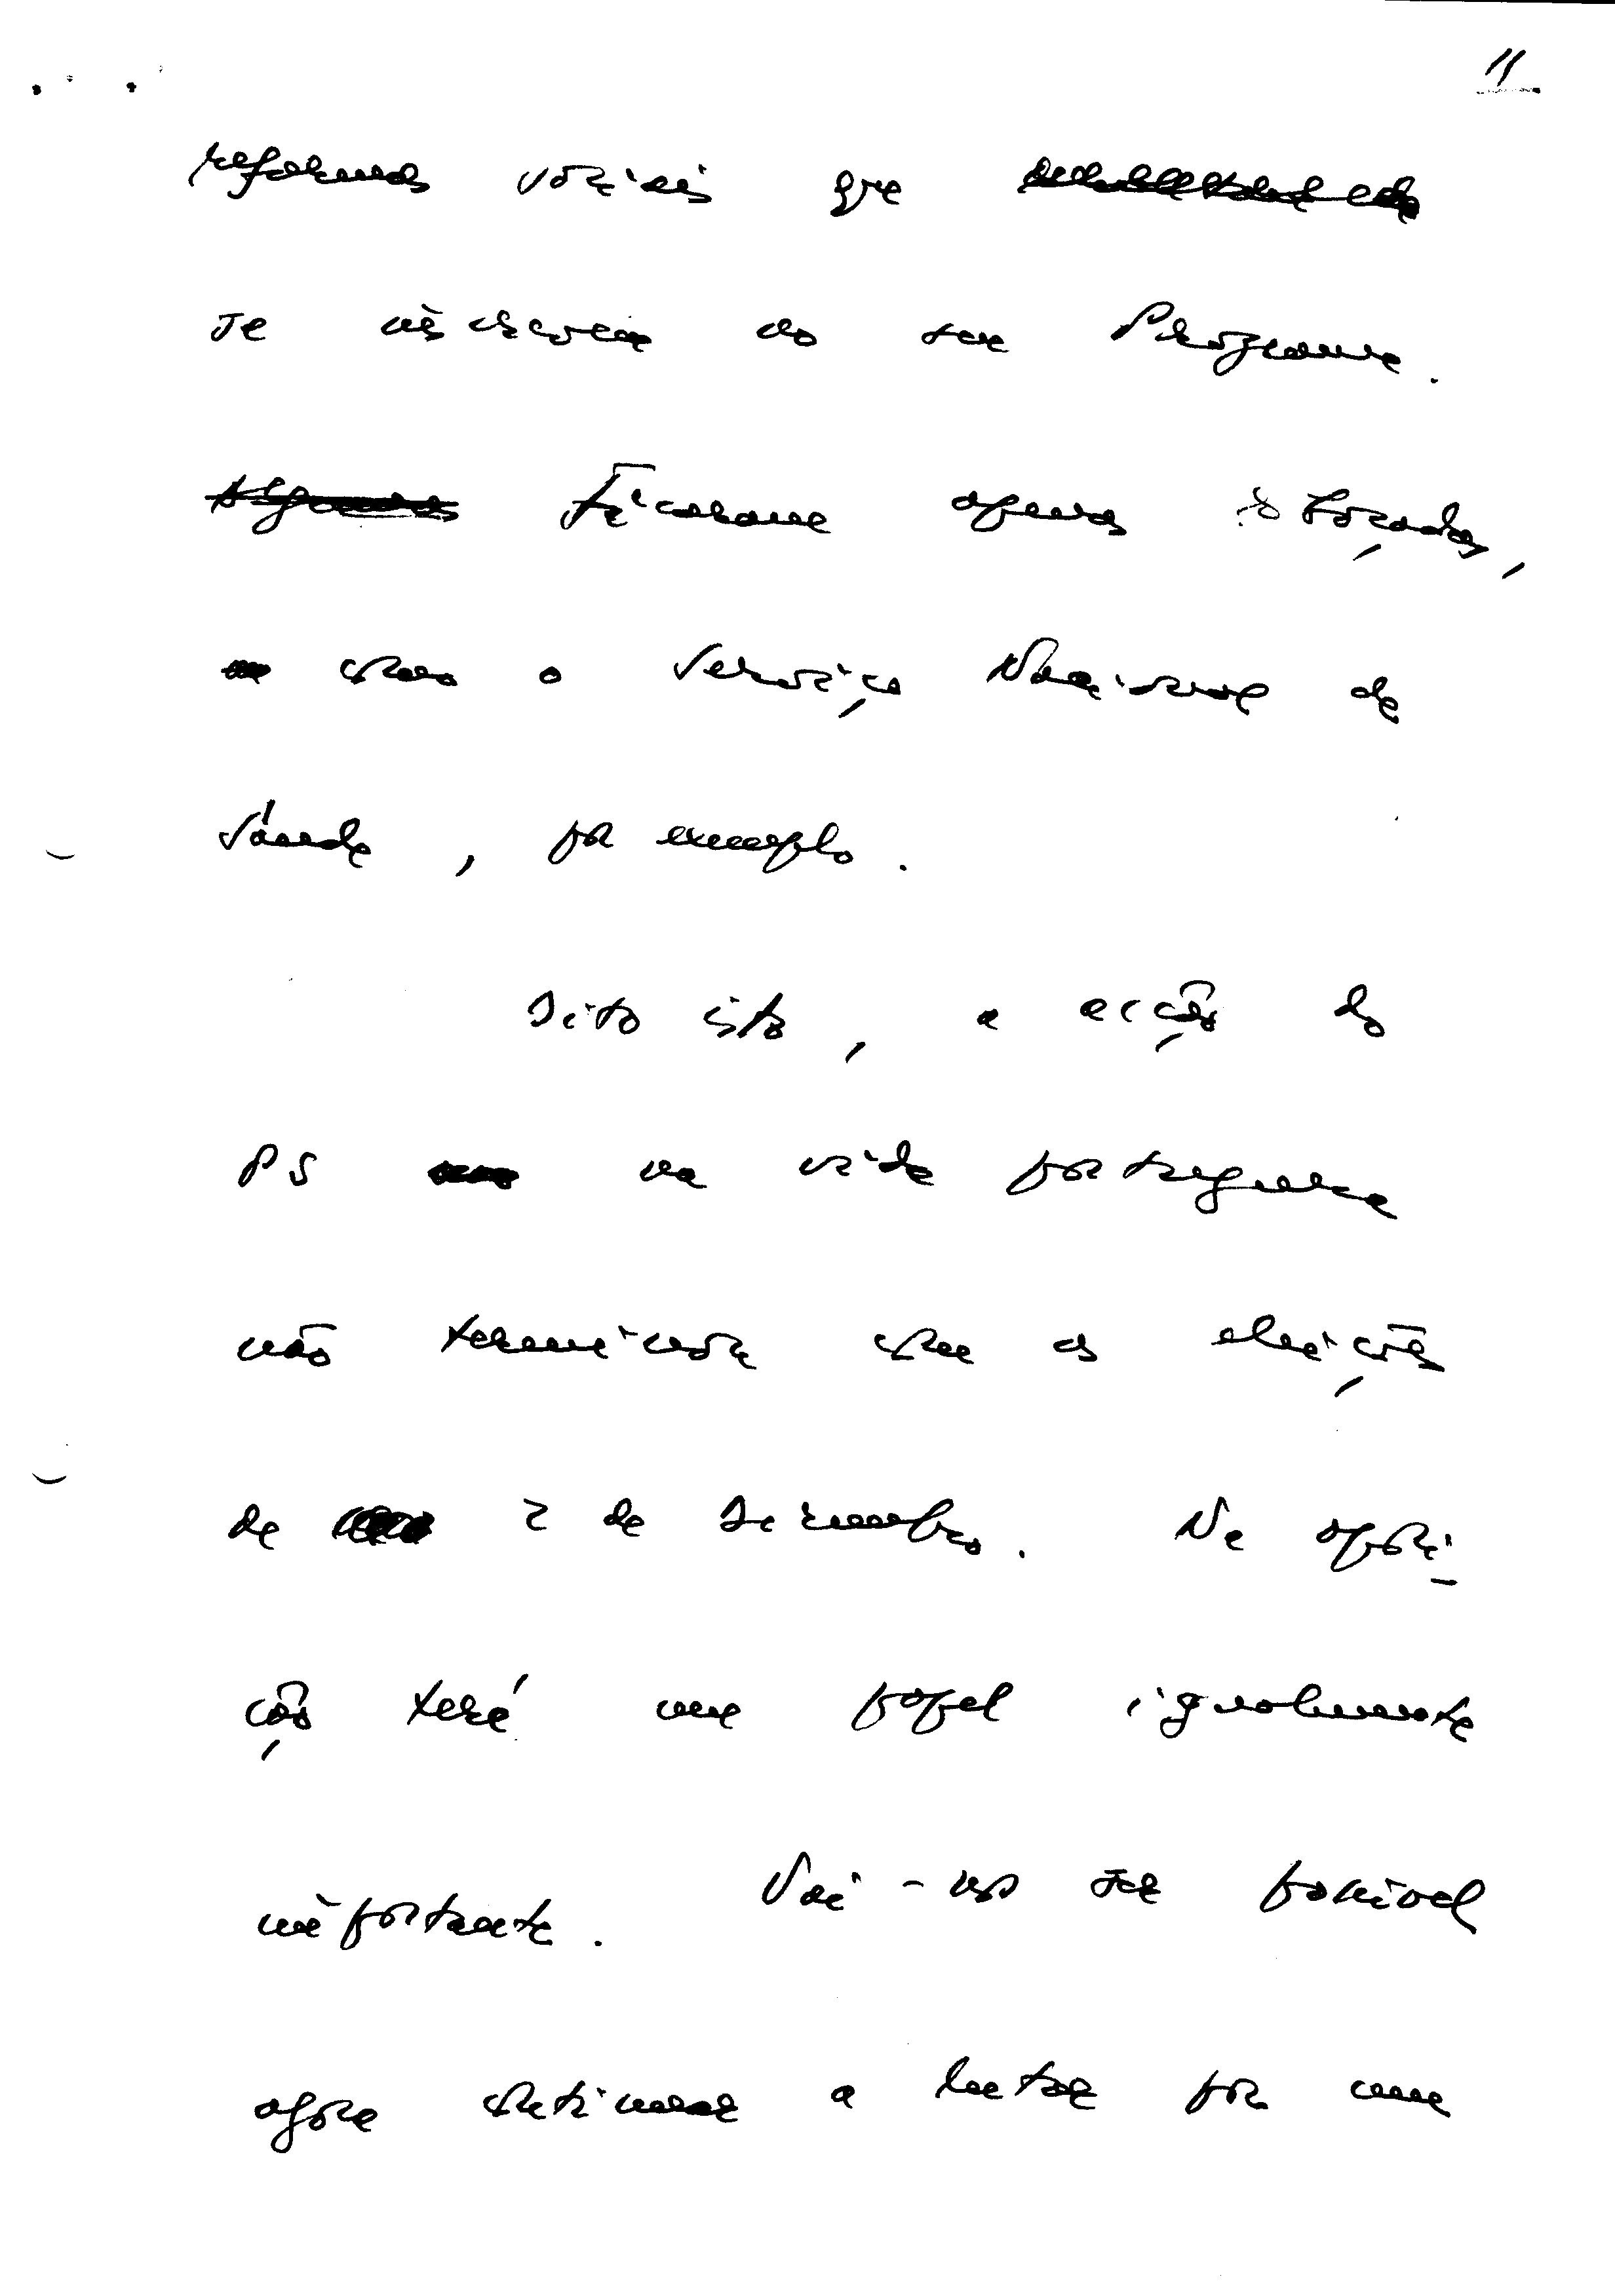 11
reformas sociais que
se inscrevem no seu Programa.
Ficaram apenas esboçadas,
como o Serviço Nacional de
Saúde, por exemplo.
Dito isto, a acção do
PS na vida portuguesa
não terminou com as eleições
de 2 de Dezembro. Na oposi-
ção terá um papel igualmente
importante. Vai-nos ser possível
agora continuar a lutar por um